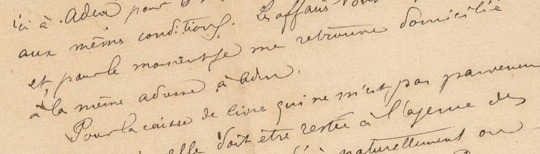 ici à Aden pour
aux mêmes conditions. Les affaires vont
et, pour le moment je me retrouve domicilié
à la même adresse à Aden.
Pour la caisse de livres qui ne m'est pas parvenue
elle doit être restée à l'agence des
naturellement on